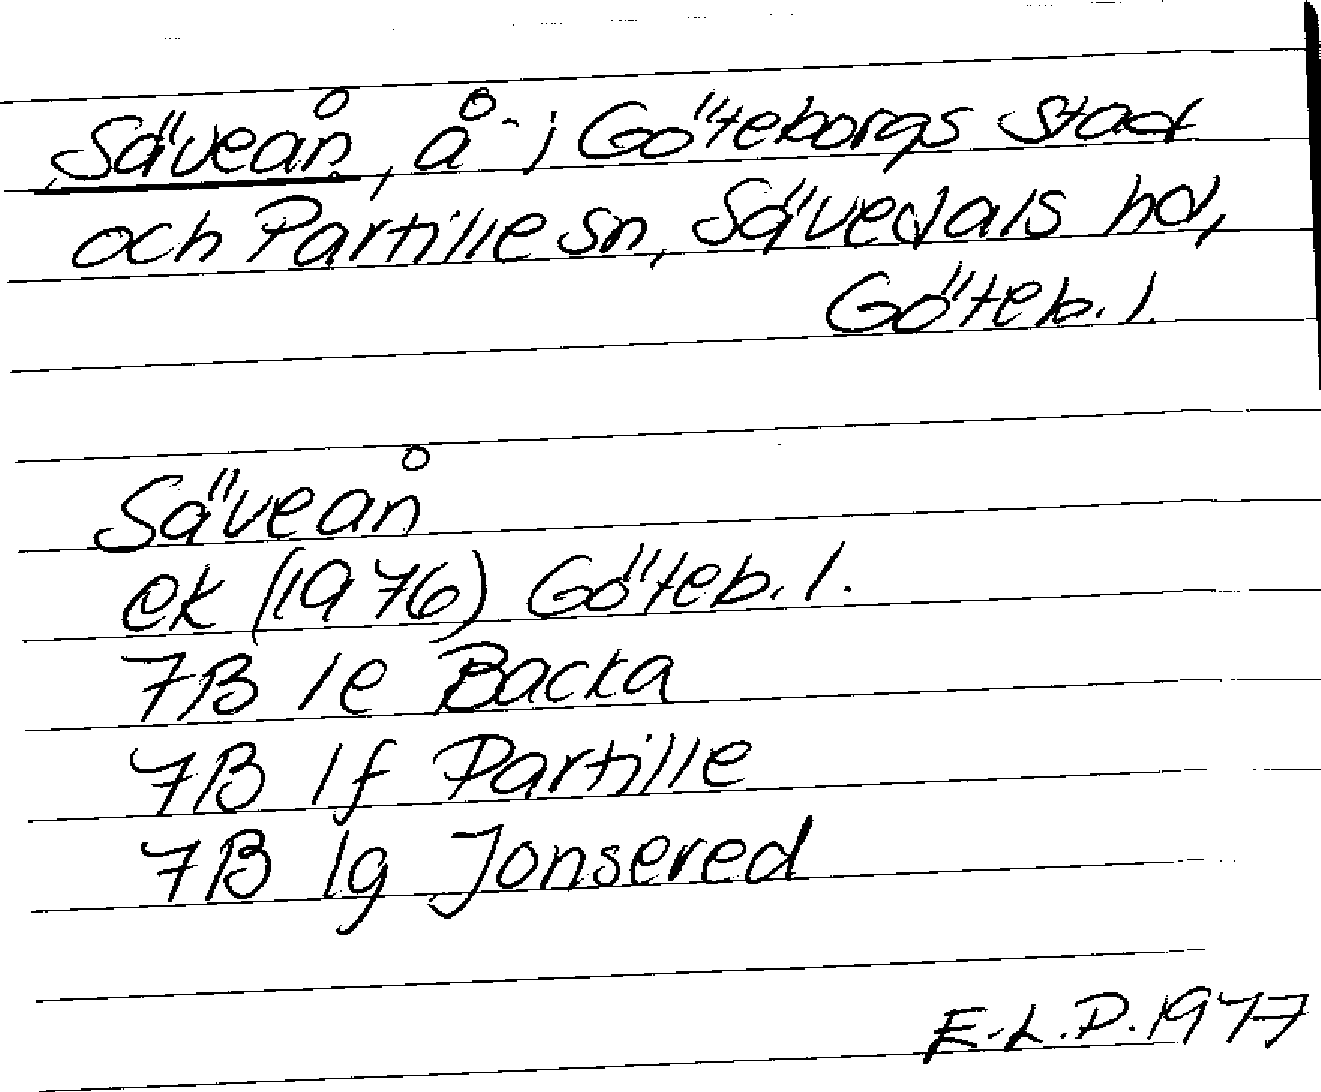 Säveån, å i Göteborgs stad
och Partille sn, Sävedals hd,
Göteb. l.
Säveån
ek (1976) Göteb. l.
7B 1e Backa
7B 1f Partille
7B 1g Jonsered
E-L.P. 1977